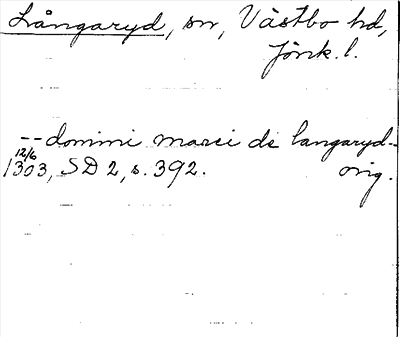 Långaryd, sn, Västbo hd,
Jönk. l.
-- domini marci de langaryd --
12/6
1303, SD 2, s. 392. orig.